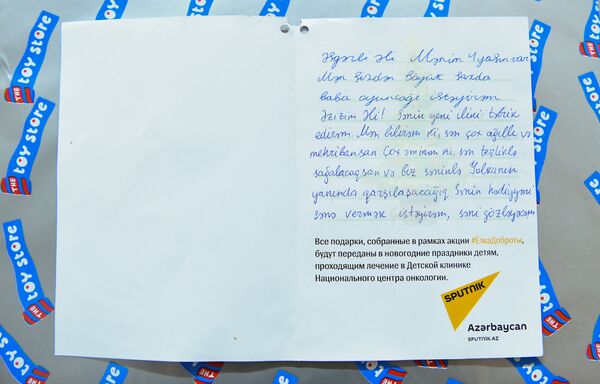 Əsgərli Əli Mənim 4 yaşım var
Mən Sizdən böyük Şaxta
baba oyuncağı istəyirəm
Əzizim Əli! Sənin yeni ilini təbrik
edirəm. Mən bilirəm ki, sən çox ağıllı və
mehribansan. Çox əminəm ki, sən tezliklə
sağalacaqsan və biz səninlə Yolkanın
yanında qarşılaşacağıq. Sənin hədiyyəni
sənə vermək istəyirəm, səni gözləyəcəm
Все подарки, собранные в рамках акции #ЁлкаДоброты,
будут переданы в новогодние праздники детям,
проходящим лечение в Детской клинике
Национального центра онкологии.
SPUTNIK
Azərbaycan
SPUTNIK.AZ
THE toy store
THE toy store
THE toy store
THE toy store
THE toy store
THE toy store